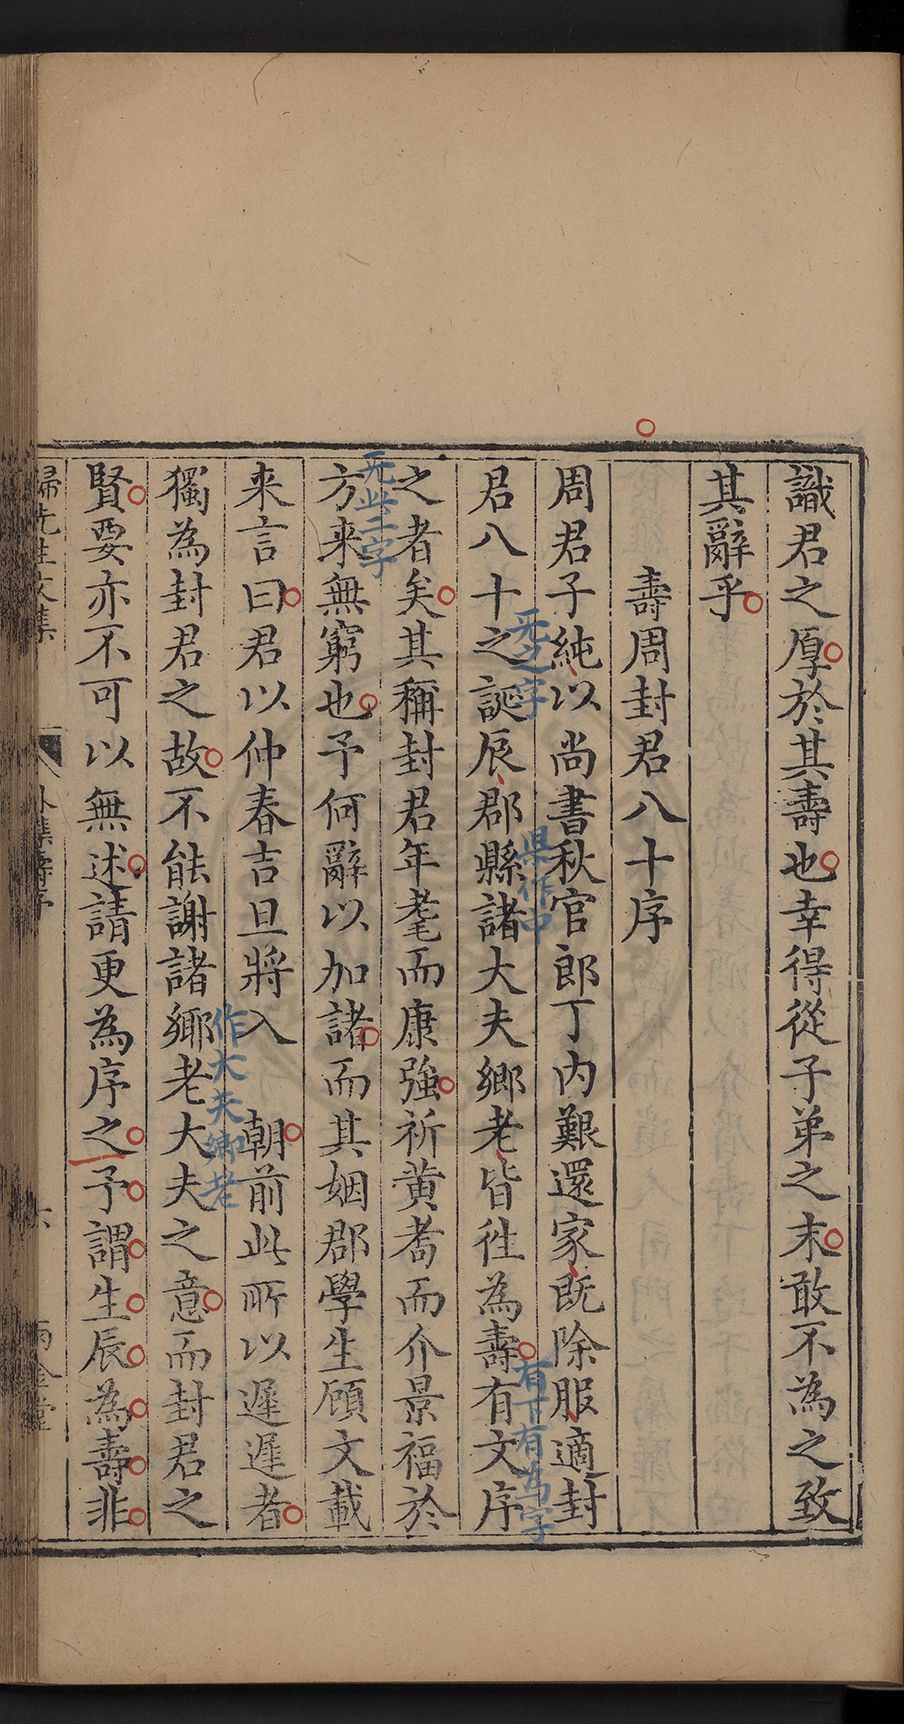 識君之厚於其壽也幸得從子弟之末敢不為之致
其辭乎
壽周封君八十序
周君子純以尚書秋官郎丁内艱還家既除服適封
君八十之誕辰郡縣諸大夫鄉老皆徃為壽有文序
无之字
県作中
有下有為字
之者矣其稱封君年耄而康強祈黄耈而介景福於
方来無窮也予何辭以加諸而其姻郡學生顧文載
无此二字
来言曰君以仲春吉旦將入 朝前此所以遲遲者
獨為封君之故不能謝諸鄉老大夫之意而封君之
作大夫鄉老
賢要亦不可以無述請更為序之予謂生辰為壽非
歸先生文集
外集壽序
六